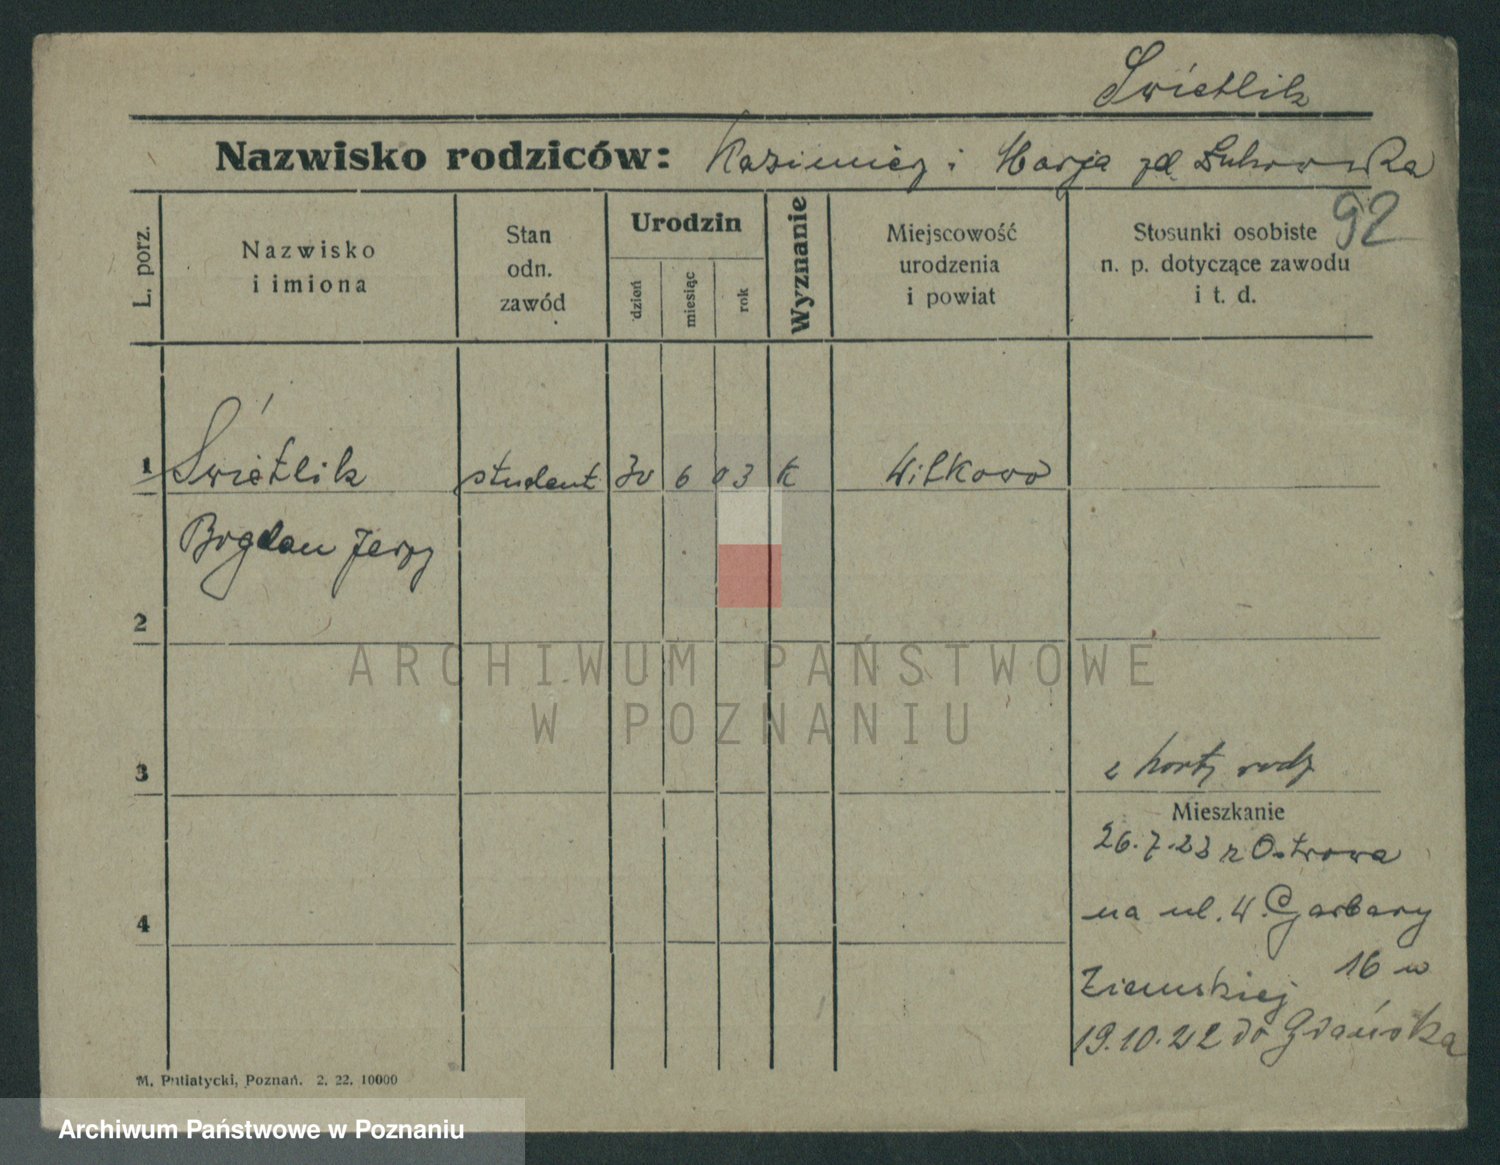 Świetlik
Nazwisko rodziców: Kazimierz i Marja zd.
92
L. porz.
Nazwisko
i imiona
Stan
odn.
zawód
Urodzin
dzień
miesiąc
rok
Wyznanie
Miejscowość
urodzenia
i powiat
Stosunki osobiste
n. p. dotyczące zawodu
i t. d.
1 Świetlik student 30 6 03 k Wilkowo
Bogdan Jerzy
2
3
z karty rodz
Mieszkanie
26.7.22 z Ostrowa
na ul. W. Garbary
4
16 w
Ziemskiej
19.10.22 do Gdańska
M. Putiatycki, Poznań. 2. 22. 10000
ARCHIWUM PAŃSTWOWE
W POZNANIU
Archiwum Państwowe w Poznaniu